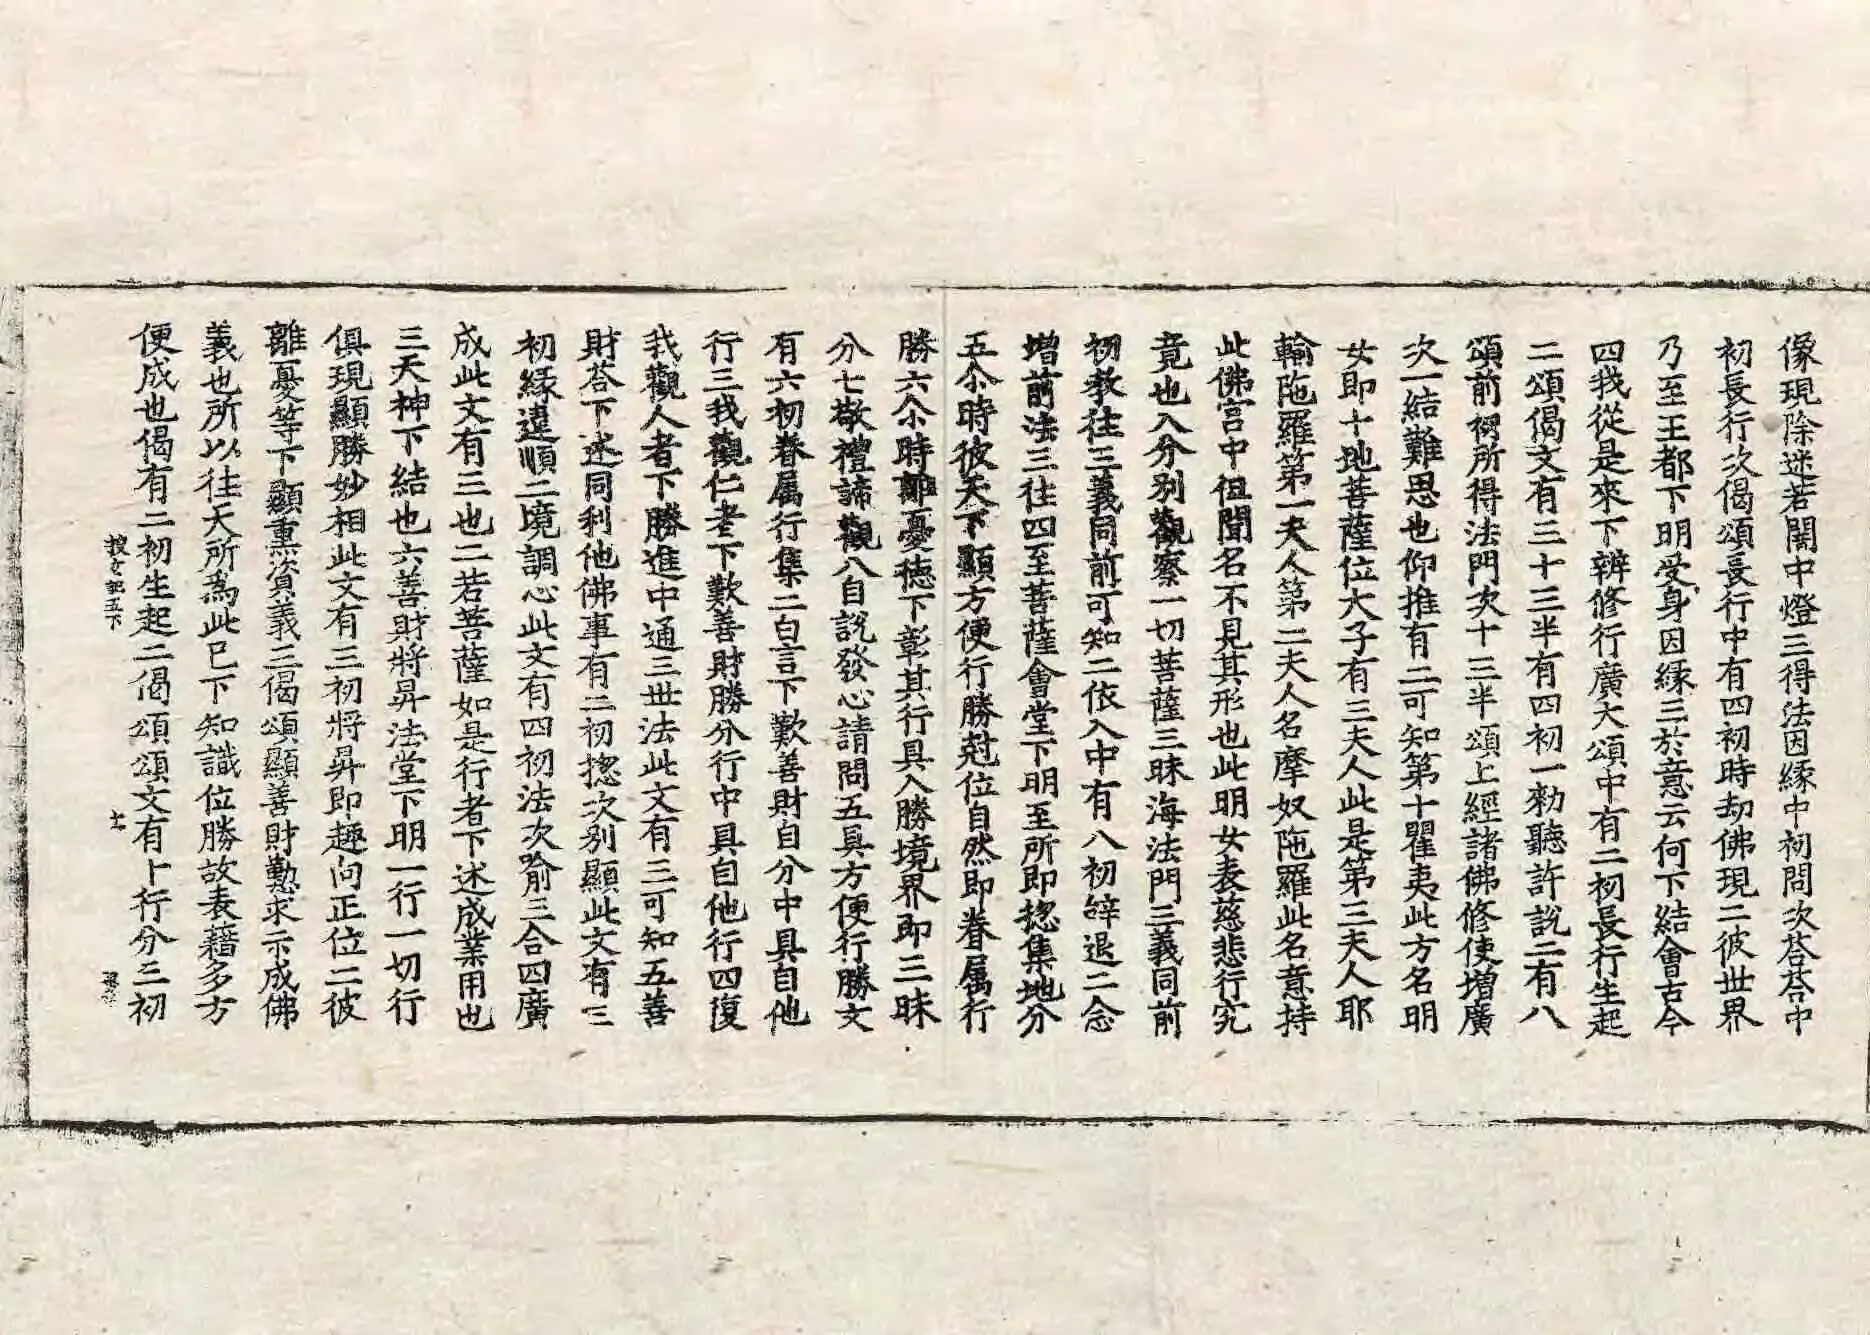 像現除迷若闇中燈三得法因緣中初問次荅荅中
初長行次偈頌長行中有四初時劫佛現二彼世界
乃至王都下明受身因緣三於意云何下結會古今
四我從是來下辨修行廣大頌中有二初長行生起
二頌偈文有三十三半有四初一勑聽許說二有八
頌前初所得法門次十三半頌上經諸佛修使增廣
次一結難思也仰推有二可知第十瞿夷此方名明
女即十地菩薩位大子有三夫人此是第三夫人耶
輸陁羅第一夫人第二夫人名摩奴陁羅此名意持
此佛宮中但聞名不見其形也此明女表慈悲行究
竟也入分別觀察一切菩薩三昧海法門三義同前
初教往三義同前可知二依入中有八初辝退二念
增前法三往四至菩薩會堂下明至所即揔集地分
五尒時彼天下顯方便行勝尅位自然即眷属行
勝六尒時離憂德下彰其行具入勝境界即三昧
分七敬禮諦觀八自說發心請問五具方便行勝文
有六初眷属行集二白言下歎善財自分中具自他
行三我觀仁者下歎善財勝分行中具自他行四復
我觀人者下勝進中通三世法此文有三可知五善
財荅下述同利他佛事有二初揔次別顯此文有三
初緣違順二境調心此文有四初法次喻三合四廣
成此文有三也二若菩薩如是行者下述成業用也
三天神下結也六善財將昇法堂下明一行一切行
俱現顯勝妙相此文有三初將昇即趣向正位二彼
離憂等下顯熏資義三偈頌顯善財懃求示成佛
義也所以往天所為此已下知識位勝故表藉多方
便成也偈有二初生起二偈頌頌文有十行分三初
搜玄記五下　　　　十七